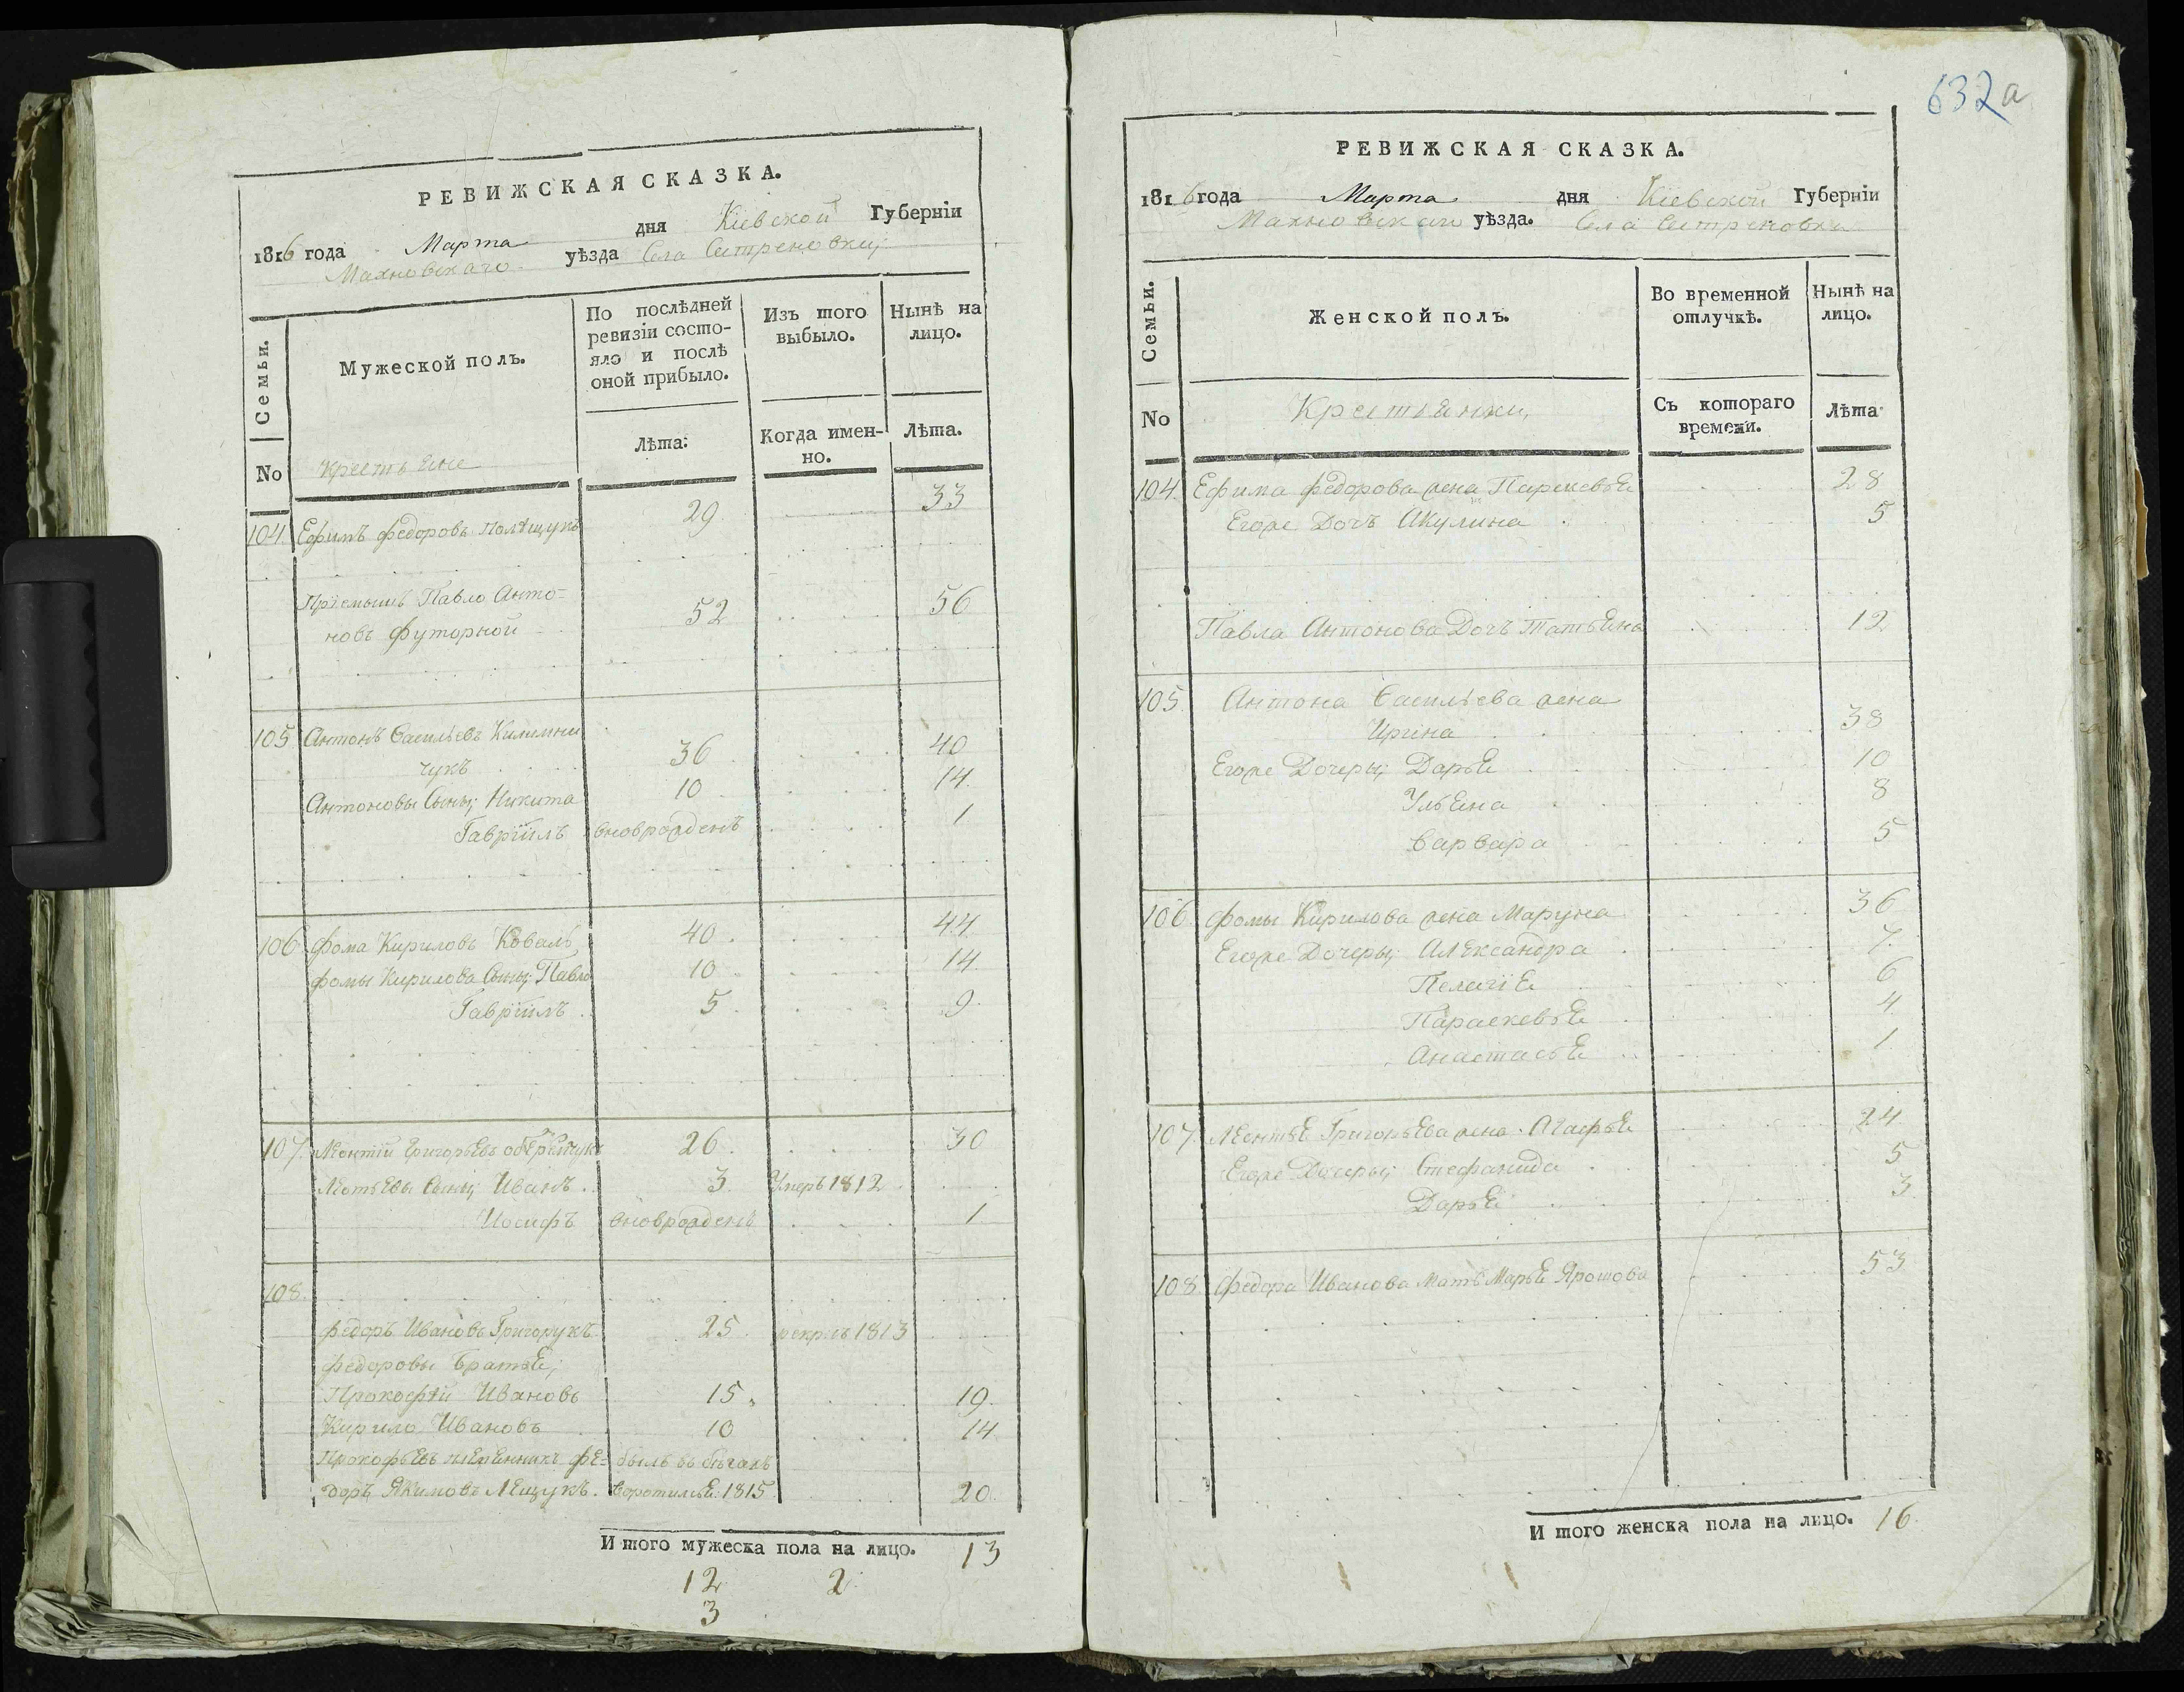 632а
РЕВИЖСКАЯ СКАЗКА.
1816 года Марта дня Кіевской Губерніи
Махновскаго уѣзда Села Сестреновки;
Семьи.
Мужеской полъ.
По послѣдней ревизіи состояло и послѣ оной прибыло.
Изъ того выбыло.
Нынѣ на лицо.
No
Крестьяне
Лѣта:
Когда именно.
Лѣта.
104. Ефимъ Федоровъ Полѣщукъ 29 33
Пріемышъ Павло Анто-
новъ Футорной 52 56
105 Антонъ Васильевъ Килимни
чукъ 36 40
Антоновы Сыны; Никита 10 14.
Гавріилъ вновьрожденъ 1
106 Фома Кириловъ Коваль 40. 44
Фомы Кирилова Сыны; Павло 10 14.
Гавріилъ 5 9.
107. Леонтій Григорьевъ 26. 30
Сыны; Иванъ 3. Умеръ 1812
Иосифъ вновьрожденъ 1
108.
Федоръ Ивановъ Григорукъ 25 1813
Федоровы братья;
Прокофій Ивановъ 15 19.
Кирило Ивановъ 10 14
Прокофьевъ племенникъ Фе- былъ въ бегахъ
доръ Якимовъ Лещукъ. воротился: 1815 20.
И того мужеска пола на лицо. 13
12 2
3
РЕВИЖСКАЯ СКАЗКА.
1816 года Марта дня Кіевской Губерніи
Махновскаго уѣзда. Села Сестреновки
Семьи.
Женской полъ.
Во временной отлучкѣ.
Нынѣ на лицо.
No
Крестьянки,
Съ котораго времени.
Лѣта
104. Ефима Федорова жена Параскевья 28
Егоже Дочь Акулина 5
Павла Антонова Дочь Татьяна 12
105. Антона Васильева жена
Ирина 38
Егоже Дочеры; Дарья 10
Ульяна 8
Варвара 5
106. Фомы Кирилова жена Маруна 36
Егоже Дочеры; Александра 7.
Пелагія 6
Параскевья 4.
Анастасья 1
107. Леонтья Григорьева жена Агафья 24
Егоже Дочеры; Стефанида 5
Дарья 3
108. Федора Иванова Мать Марья 53
И того женска пола на лицо. 16.